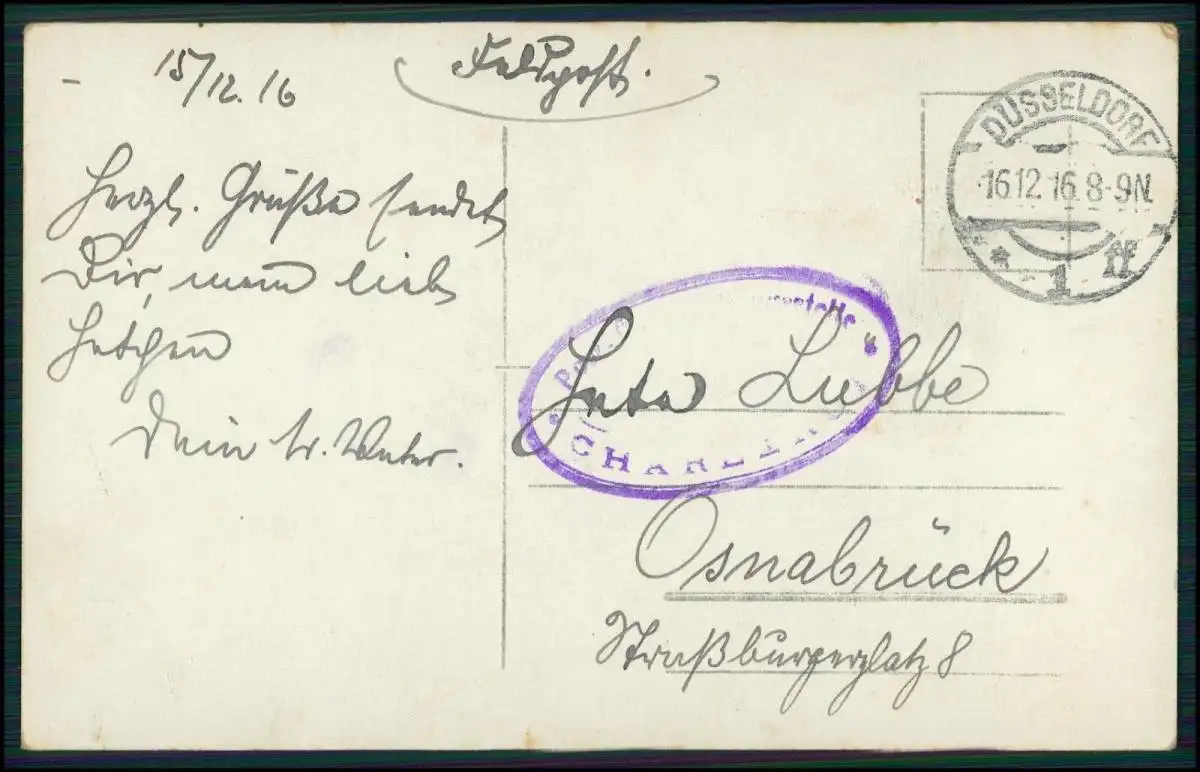 15/12.16
Feldpost.
Herzl. Grüße sendet
Dir, mein lieb.
Hetchen
Dein tr. Vater.
DÜSSELDORF
16.12.16.8-9N.
* 1 ff
CHARLEROI
Heta Lübbe
Osnabrück
Straßburgerplatz 8